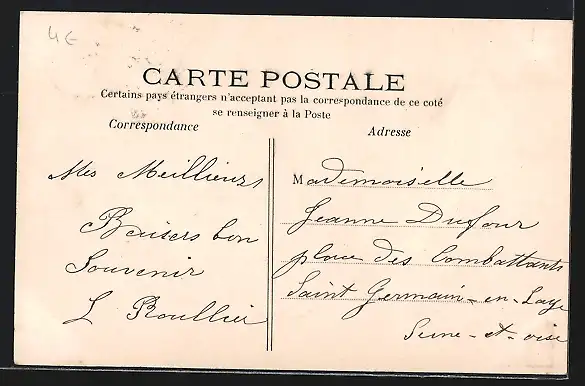 4 €
CARTE POSTALE
Certains pays étrangers n'acceptant pas la correspondance de ce coté
se renseigner à la Poste
Correspondance
Mes Meillieurs
Baisers bon
Souvenir
L Roullier
Adresse
Mademoiselle
Jeanne Dufour
place des Combattants
Saint Germain-en-Laye
Seine-et-oise